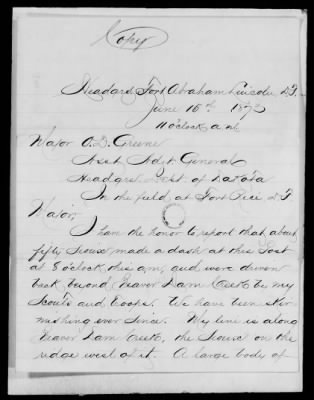 Copy
Headqrs Fort Abraham Lincoln D.T.
June 15th 1873
11 o'clock a.m.
Major O. D. Greene
Asst Adjt General
Headqrs Dept. of Dakota
In the field, at Fort Rice D.T.
Major,
I have the honor to report that about
fifty Sioux made a dash at this Post
at 8 o'clock this a.m. and were driven
back beyond Beaver Dam Creek by my
Scouts and troops. We have been skir-
mishing ever since. My line is along
Beaver Dam Creek, the Sioux on the
ridge west of it. A large body of